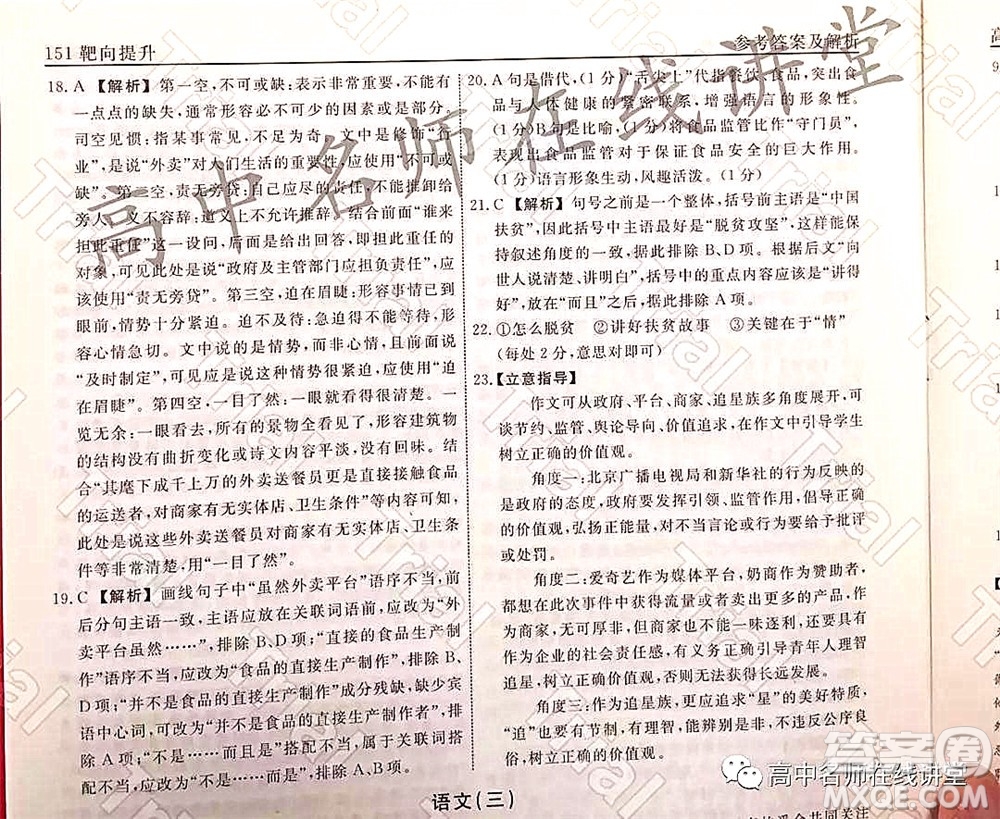 151 靶向提升
参考答案及解析
18. A 【解析】第一空，不可或缺：表示非常重要，不能有
一点点的缺失，通常形容必不可少的因素或是部分。
司空见惯：指某事常见，不足为奇。文中是修饰“行
业”，是说“外卖”对人们生活的重要性，应使用“不可或
缺”。第二空，责无旁贷：自己应尽的责任，不能推卸给
旁人。义不容辞：道义上不允许推辞。结合前面“谁来
担此重任”这一设问，后面应该回答出担此重任的
对象，可见此处是说“政府及主管部门应担负责任”，应
该使用“责无旁贷”。第三空，迫在眉睫：形容事情已到
眼前，情势十分紧迫。迫不及待：急迫得不能等待，形
容心情急切。文中说的是情势，而非心情，根据后文
“及时制定”，可见此处是说情势紧迫，应该使用“迫
在眉睫”。第四空，一目了然：一眼就看得很清楚。一
览无余：一眼看去，所有的景物全看见了，形容建筑物
的结构没有曲折变化或诗文内容平淡，没有回味。
结合“其麾下成千上万的外卖送餐员更是商家食品
的运送者，对商家有无实体店、卫生条件”等可知，
此处是说这些外卖送餐员对商家有无实体店、卫生条
件等非常清楚，应使用“一目了然”。
19. C 【解析】画线句子中“虽然外卖平台”语序不当，前
后分句主语一致，主语应放在关联词语前，改为“外
卖平台虽然……”，排除B、D项；“直接的食品生产制
作”语序不当，应改为“食品的直接生产制作”，排除B、
D项；“并不是食品的直接生产制作”成分残缺，缺少宾
语中心词，可改为“并不是食品的直接生产制作者”，排
除D项；“不是……而且是”搭配不当，属于关联词搭
配不当，应改为“不是……而是”或“不是……但
是”，排除A、B项。
20. A句是借代，（1分）“舌尖上”代指餐饮、食品，突出食
品与人体健康的紧密联系，增强语言的形象性。
（1分）B句是比喻，（1分）将食品监管比作“守门员”，
表现出食品监管对于保证食品安全的巨大作用。
（1分）语言形象生动，风趣活泼。（1分）
21. C 【解析】句号之前是一个整体，括号前主语是“中国
扶贫”，因此括号中主语最好是“脱贫攻坚”，这样能保
持叙述角度的一致，据此排除B、D项。根据后文“向
世人说清楚、讲明白”，括号中的重点内容应该是“讲得
好”，放在“而且”之后，据此排除A项。
22. ①怎么脱贫 ②讲好扶贫故事 ③关键在于“情”
（每处2分，意思对即可）
23. 【立意指导】
作文可从政府、平台、商家、追星族多角度展开，可
谈节约、监管、舆论导向、价值追求，在作文中引导学生
树立正确的价值观。
角度一：北京广播电视局和新华社的行为反映的
是政府的态度，政府要发挥引领、监管作用，倡导正确
的价值观，弘扬正能量，对不当言论或行为要给予批评
或处罚。
角度二：爱奇艺作为媒体平台，奶商作为赞助者，
想在此次事件中获得流量或卖出更多的产品，作为商
家，无可厚非，但商家也不能一味逐利，更要体现出作
为企业的社会责任感，要积极引导青年人树立理智文
明追星、健康娱乐、杜绝浪费等正确的价值观。
角度三：青少年追星无可厚非，但“星”应有值得追
逐的“星质”，不能只看颜值，更应追求“星”的美好特质，
“追”也要有节制，有理智，能辨别是非，不违反公序良
俗，树立正确的价值观。
语文（三）
高中名师在线讲堂
Trial
高中名师在线讲堂
答案圈
MXQE.COM